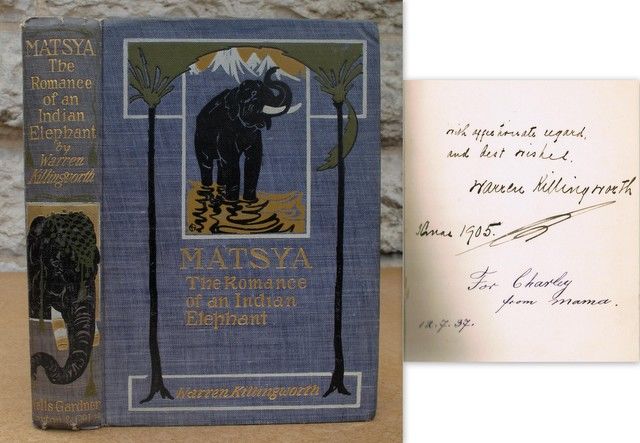 MATSYA
The
Romance
of an
Indian
Elephant
by
Warren
Killingworth
Wells Gardner
MATSYA
The Romance
of an Indian
Elephant
Warren Killingworth
with affectionate regard,
and best wishes.
Warren Killingworth
Xmas 1905.
For Charley
from mama.
12.7.37.